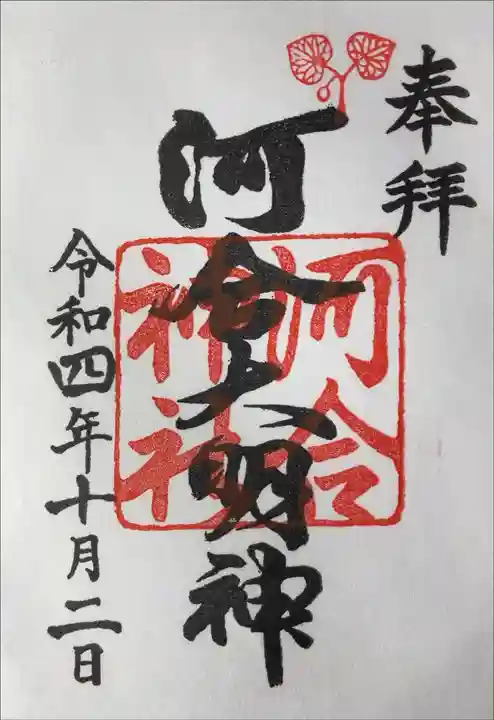 奉拝
河合大明神
河合神社
令和四年十月二日